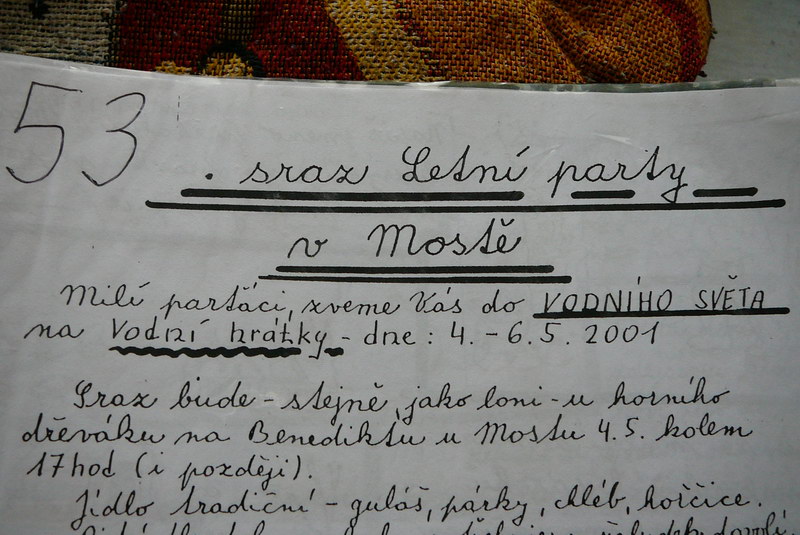 53. sraz Letní party
v Mostě
Milí parťáci, zveme Vás do VODNÍHO SVĚTA
na Vodní hrátky - dne: 4. - 6.5. 2001
Sraz bude - stejně, jako loni - u horního
dřeváku na Benediktu u Mostu 4.5. kolem
17hod (i později).
Jídlo tradiční - guláš, párky, chléb, hořčice.